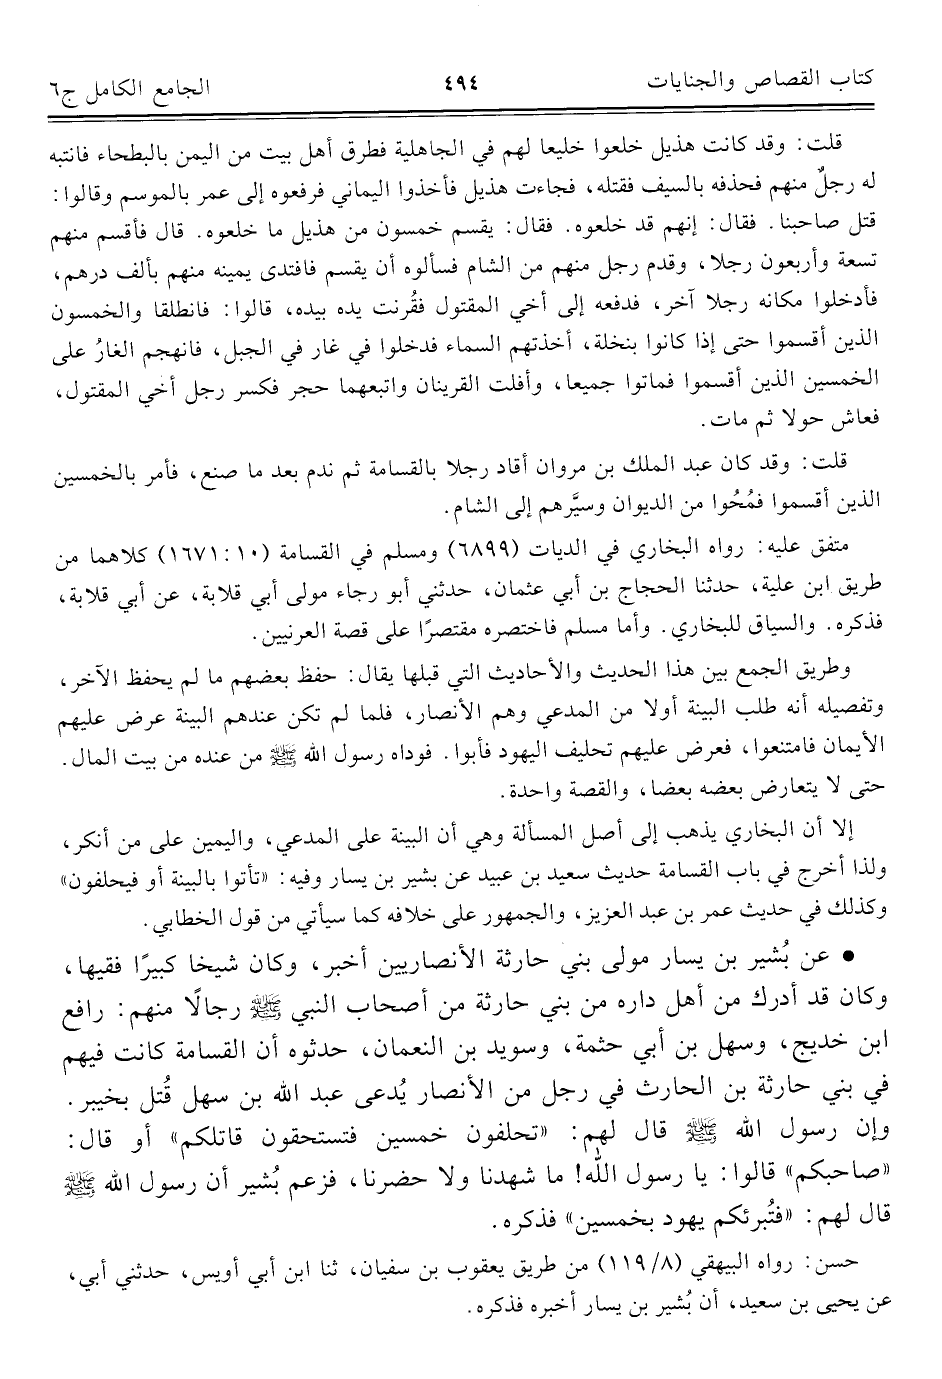 كتاب القصاص والجنايات ٤٩٤ الجامع الكامل ج٦
قلت: وقد كانت هذيل خلعوا خليعا لهم في الجاهلية فطرق أهل بيت من اليمن بالبطحاء فانتبه
له رجلٌ منهم فحذفه بالسيف فقتله، فجاءت هذيل فأخذوا اليماني فرفعوه إلى عمر بالموسم وقالوا:
قتل صاحبنا. فقال: إنهم قد خلعوه. فقال: يقسم خمسون من هذيل ما خلعوه. قال فأقسم منهم
تسعة وأربعون رجلا، وقدم رجل منهم من الشام فسألوه أن يقسم فافتدى يمينه منهم بألف درهم،
فأدخلوا مكانه رجلا آخر، فدفعه إلى أخي المقتول فقُرنت يده بيده، قالوا: فانطلقا والخمسون
الذين أقسموا حتى إذا كانوا بنخلة، أخذتهم السماء فدخلوا في غار في الجبل، فانهجم الغارُ على
الخمسين الذين أقسموا فماتوا جميعا، وأفلت القرينان واتبعهما حجر فكسر رجل أخي المقتول،
فعاش حولا ثم مات.
قلت: وقد كان عبد الملك بن مروان أقاد رجلا بالقسامة ثم ندم بعد ما صنع، فأمر بالخمسين
الذين أقسموا فمُحُوا من الديوان وسيَّرهم إلى الشام.
متفق عليه: رواه البخاري في الديات (٦٨٩٩) ومسلم في القسامة (١٠:١٦٧١) كلاهما من
طريق ابن علية، حدثنا الحجاج بن أبي عثمان، حدثني أبو رجاء مولى أبي قلابة، عن أبي قلابة،
فذكره. والسياق للبخاري. وأما مسلم فاختصره مقتصرًا على قصة العرنيين.
وطريق الجمع بين هذا الحديث والأحاديث التي قبلها يقال: حفظ بعضهم ما لم يحفظ الآخر،
وتفصيله أنه طلب البينة أولا من المدعي وهم الأنصار، فلما لم تكن عندهم البينة عرض عليهم
الأيمان فامتنعوا، فعرض عليهم تحليف اليهود فأبوا. فوداه رسول الله ﷺ من عنده من بيت المال.
حتى لا يتعارض بعضه بعضا، والقصة واحدة.
إلا أن البخاري يذهب إلى أصل المسألة وهي أن البينة على المدعي، واليمين على من أنكر،
ولذا أخرج في باب القسامة حديث سعيد بن عبيد عن بشير بن يسار وفيه: «تأتوا بالبينة أو فيحلفون»
وكذلك في حديث عمر بن عبد العزيز، والجمهور على خلافه كما سيأتي من قول الخطابي.
• عن بُشير بن يسار مولى بني حارثة الأنصاريين أخبر، وكان شيخا كبيرًا فقيها،
وكان قد أدرك من أهل داره من بني حارثة من أصحاب النبي ﷺ رجالًا منهم: رافع
ابن خديج، وسهل بن أبي حثمة، وسويد بن النعمان، حدثوه أن القسامة كانت فيهم
في بني حارثة بن الحارث في رجل من الأنصار يُدعى عبد الله بن سهل قُتل بخيبر.
وإن رسول الله ﷺ قال لهم: «تحلفون خمسين فتستحقون قاتلكم» أو قال:
«صاحبكم» قالوا: يا رسول الله! ما شهدنا ولا حضرنا، فزعم بُشير أن رسول الله ﷺ
قال لهم: «فتُبرئكم يهود بخمسين» فذكره.
حسن: رواه البيهقي (٨/ ١١٩) من طريق يعقوب بن سفيان، ثنا ابن أبي أويس، حدثني أبي،
عن يحيى بن سعيد، أن بُشير بن يسار أخبره فذكره.